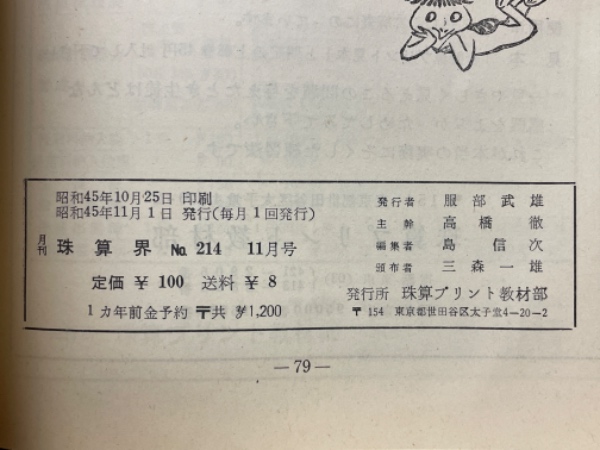 昭和45年10月25日 印刷
昭和45年11月1日 発行(毎月1回発行)
月刊 珠算界 No.214 11月号
定価 ¥100 送料 ¥8
1カ年前金予約 〒共 ¥1,200
発行者 服部武雄
主幹 高橋徹
編集者 島信次
頒布者 三森一雄
発行所 珠算プリント教材部
〒154 東京都世田谷区太子堂4-20-2
—79—